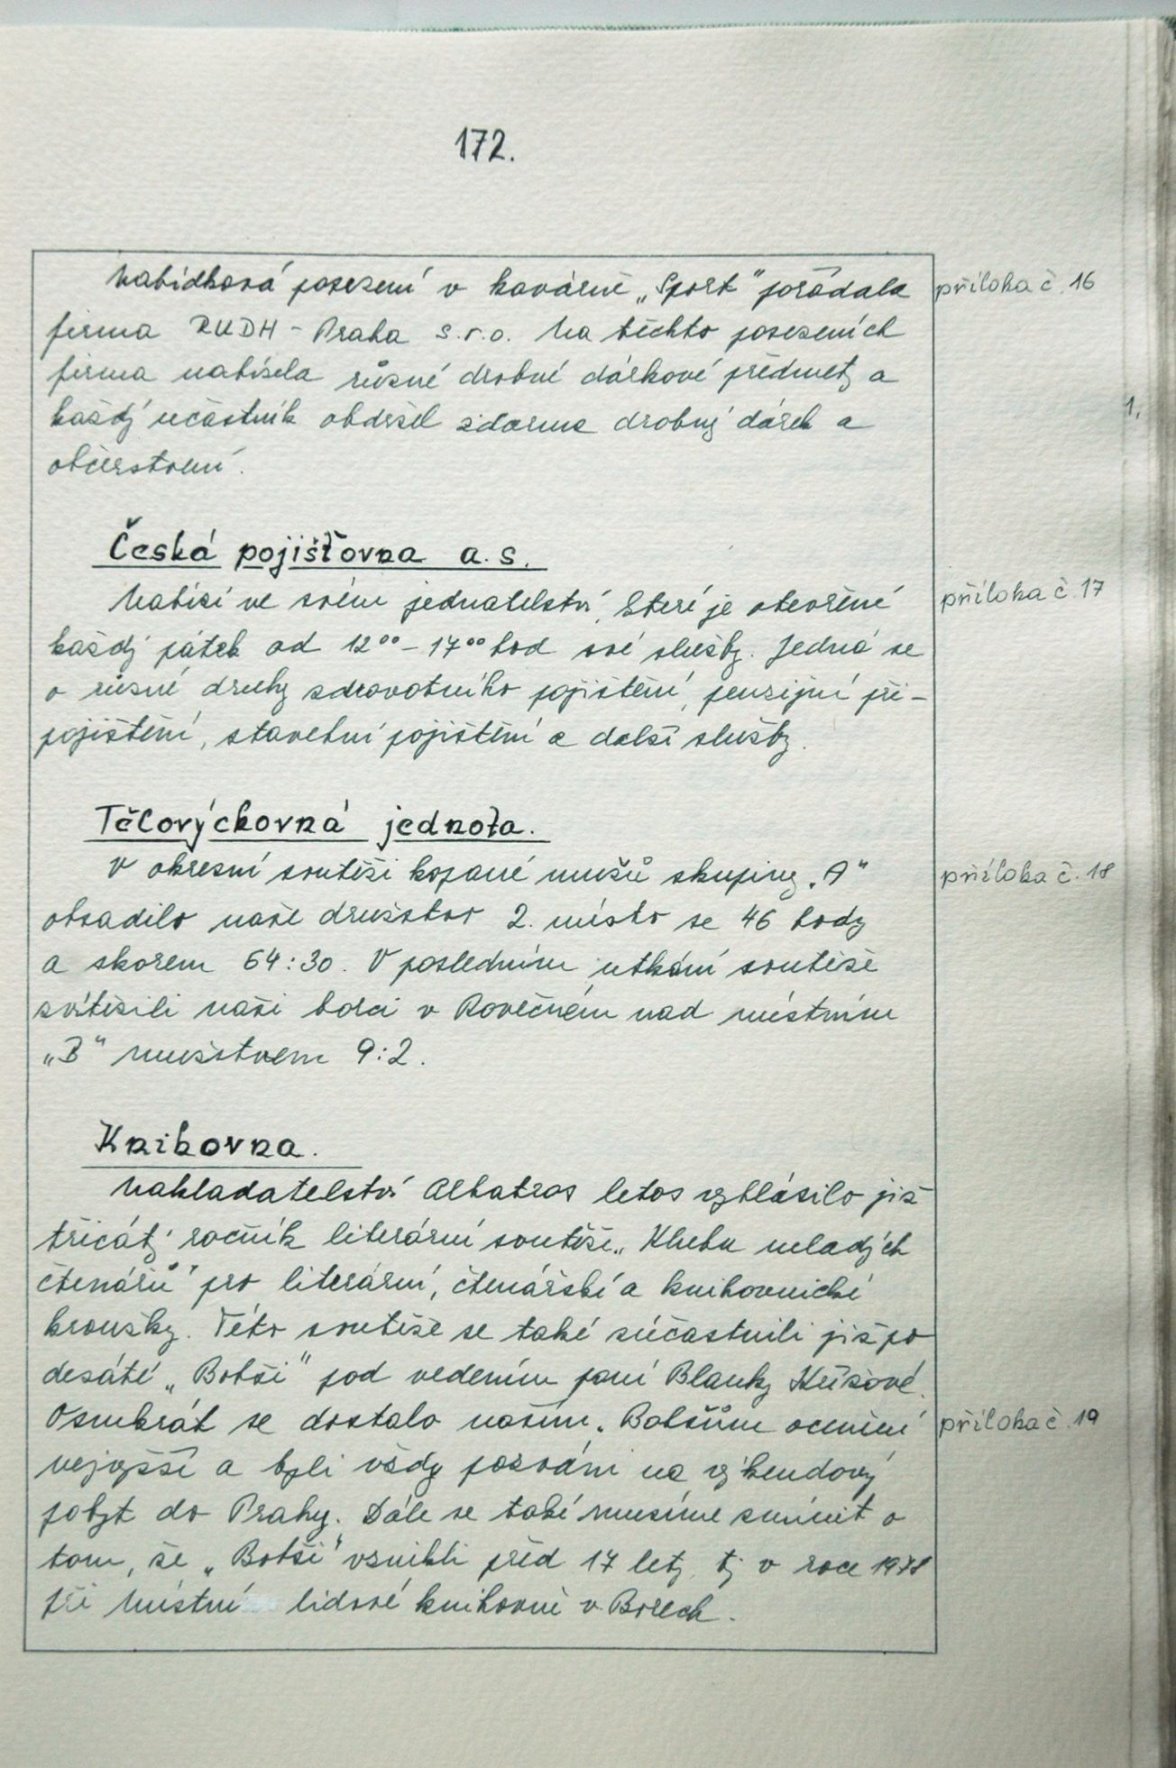 172.
Nabídková posezení v kavárně „Sport" pořádala
příloha č. 16
firma RUDH - Praha s.r.o. Na těchto posezeních
firma nabízela různé drobné dárkové předmety a
každý učástník obdržel zdarma drobný dárek a
občerstvení.
Česká pojišťovna a.s.
Nabízí ve svém jednatelství, které je otevřené
příloha č. 17
každý pátek od 12⁰⁰ - 17⁰⁰ hod své služby. Jedná se
o různé druhy zdravotního pojištění, penzijní při-
pojištění, stavební pojištění a další služby.
Tělovýchovná jednota.
V okresní soutěži kopané mužů skupiny „A"
příloha č. 18
obsadilo naše družstvo 2. místo se 46 body
a skorem 64:30. V posledním utkání soutěže
zvítězili naši borci v Rovečném nad místním
„B" mužstvem 9:2.
Knihovna.
Nakladatelství Albatros letos vyhlásilo již
třicátý ročník literární soutěže „Klubu mladých
čtenářů" pro literární, čtenářské a knihovnické
kroužky. Této soutěže se také zúčastnili již po
desáté „Botši" pod vedením paní Blanky
Osmkrát se dostalo našim „Botšům ocenění
příloha č. 19
nejvyšší a byli vždy pozváni na výkendový
pobyt do Prahy. Dále se také musíme zmínit o
tom, že „Botši" vznikli před 17 lety, tj v roce 1978
při Místní lidové knihovně v Borech.
1,